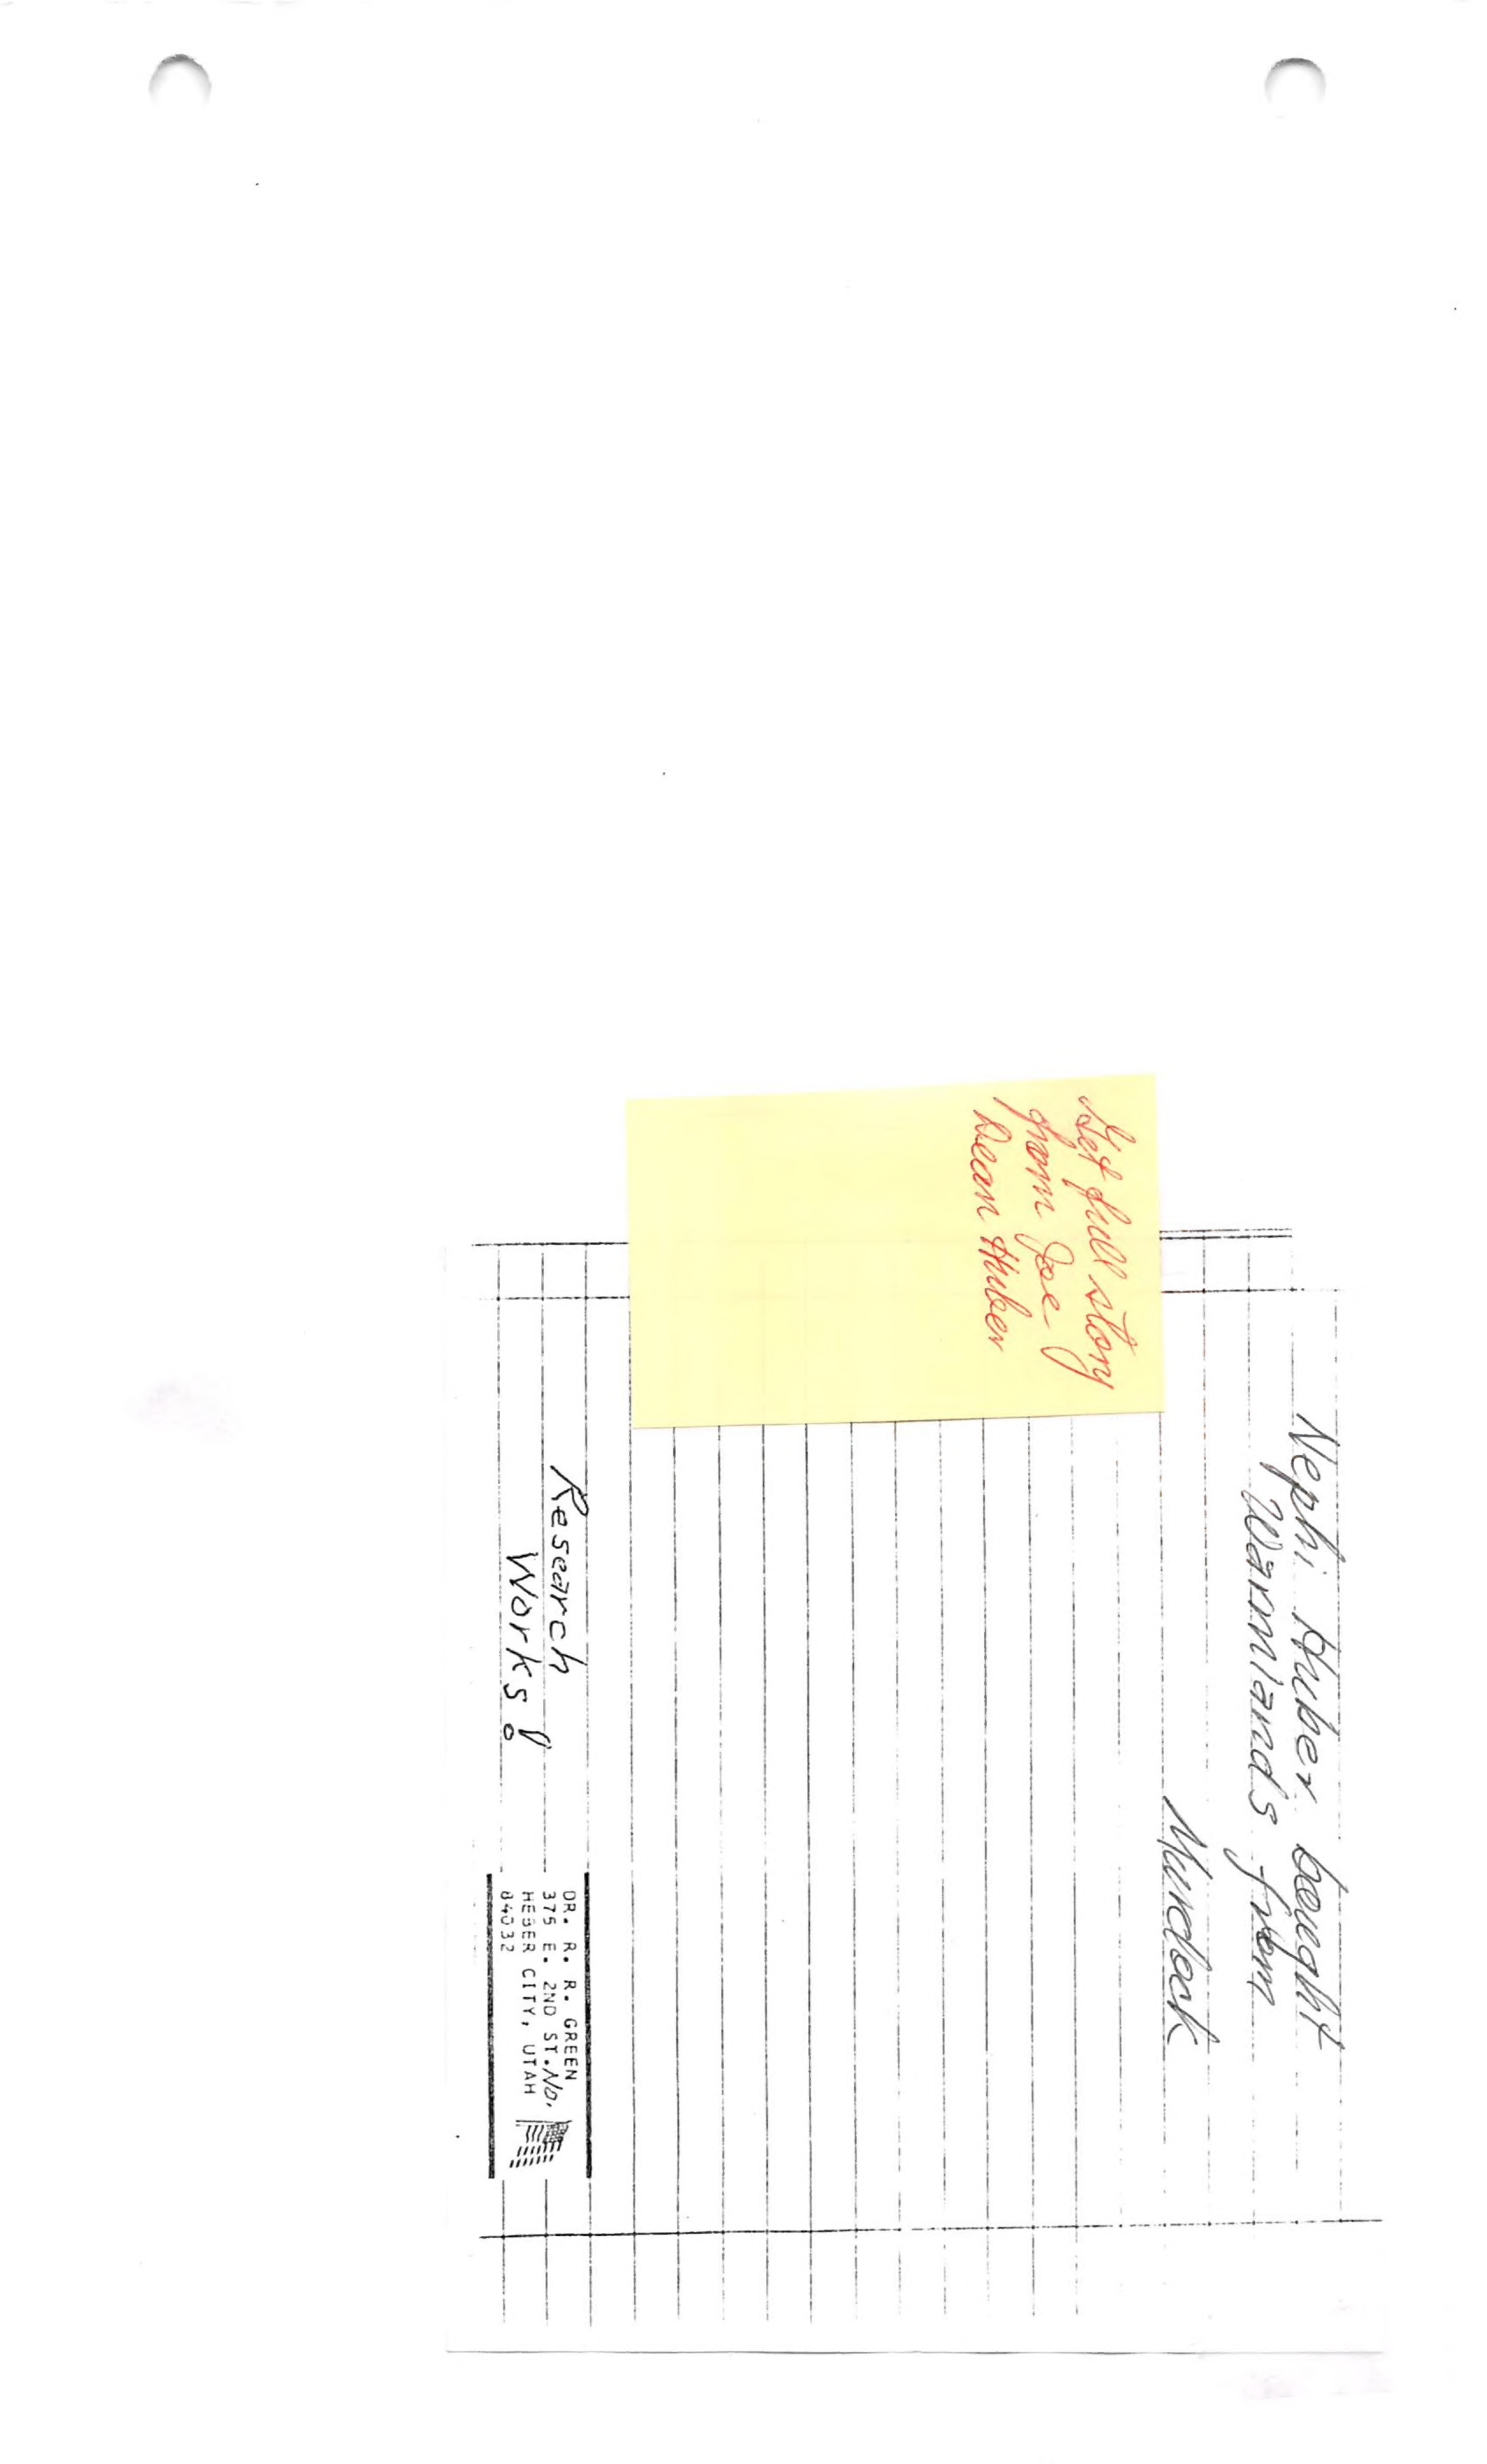 Nephi Huber bought
Warmlands from
Murdock
Get full story
from Joe
Dean Huber
Research
Works!
DR. R. R. GREEN
375 E. 2ND ST. No.
HEBER CITY, UTAH
84032